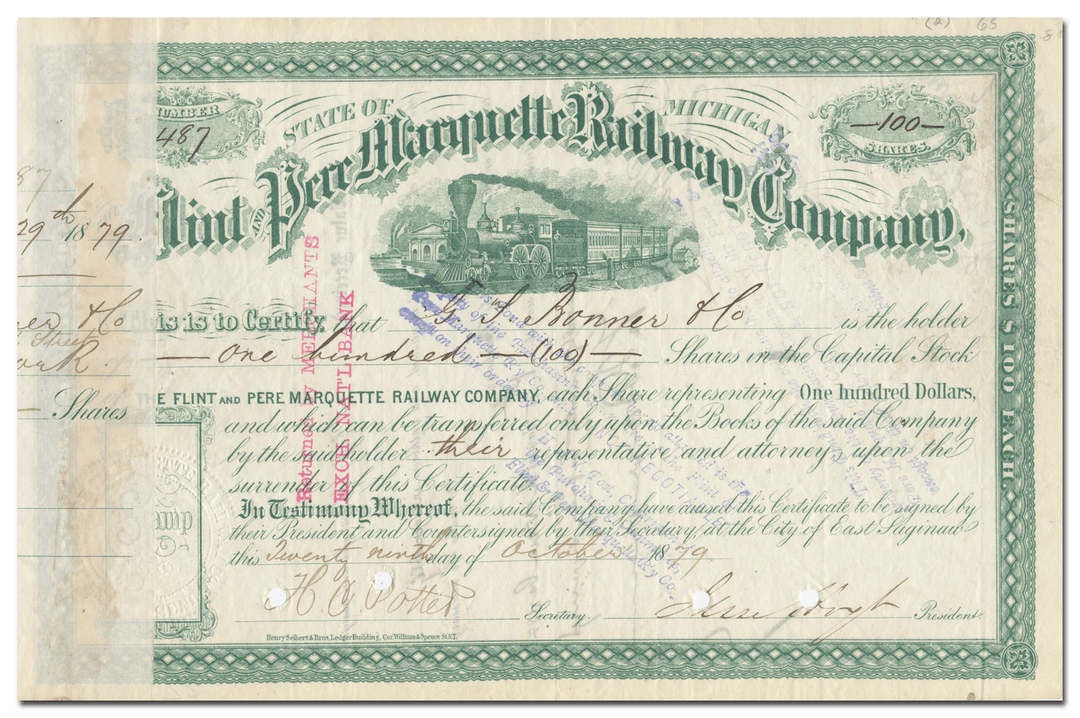 (2) 65
NUMBER
487
STATE OF MICHIGAN
—100—
SHARES.
Flint AND Pere Marquette Railway Company.
87
29th 1879.
ner & Co
Street
ork.
— Shares
This is to Certify, that G S Bonner & Co is the holder
— One hundred — (100) — Shares in the Capital Stock
THE FLINT AND PERE MARQUETTE RAILWAY COMPANY, each Share representing One Hundred Dollars,
and which can be transferred only upon the Books of the said Company
by the said holder their representative and attorney upon the
surrender of this Certificate.
In Testimony Whereof, the said Company have caused this Certificate to be signed by
their President and Countersigned by their Secretary, at the City of East Saginaw
this Twenty ninth day of October 1879
H C Potter Secretary. Jesse Hoyt President.
Henry Seibert & Bros. Ledger Building, Cor. William & Spruce St. N.Y.
SHARES $100 EACH.
Returned MERCHANTS
EXCH. NAT'L BANK
amp